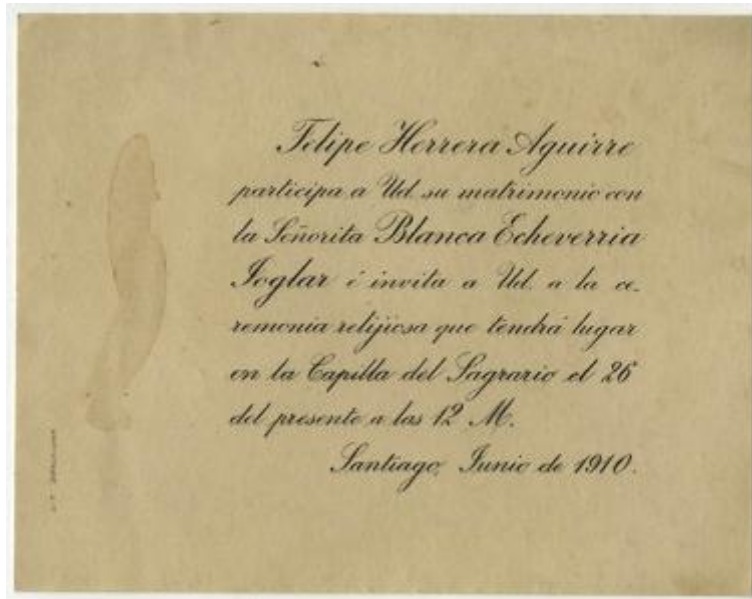 Felipe Herrera Aguirre
participa a Ud. su matrimonio con
la Señorita Blanca Echeverria
Joglar é invita a Ud. a la ce-
remonia relijiosa que tendrá lugar
en la Capilla del Sagrario el 26
del presente a las 12 M.
Santiago, Junio de 1910.